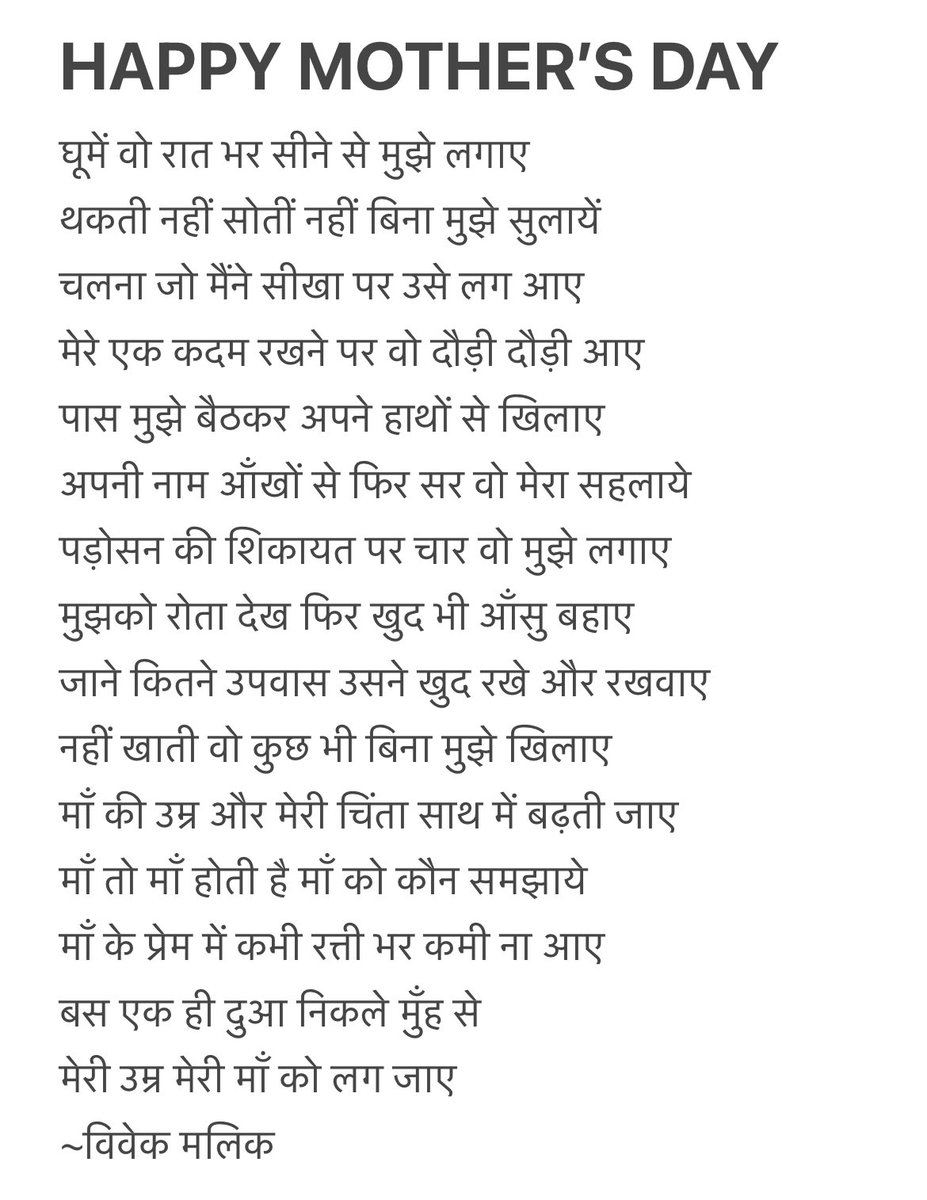 HAPPY MOTHER’S DAY
घूमें वो रात भर सीने से मुझे लगाए
थकती नहीं सोतीं नहीं बिना मुझे सुलायें
चलना जो मैंने सीखा पर उसे लग आए
मेरे एक कदम रखने पर वो दौड़ी दौड़ी आए
पास मुझे बैठकर अपने हाथों से खिलाए
अपनी नाम आँखों से फिर सर वो मेरा सहलाये
पड़ोसन की शिकायत पर चार वो मुझे लगाए
मुझको रोता देख फिर खुद भी आँसु बहाए
जाने कितने उपवास उसने खुद रखे और रखवाए
नहीं खाती वो कुछ भी बिना मुझे खिलाए
माँ की उम्र और मेरी चिंता साथ में बढ़ती जाए
माँ तो माँ होती है माँ को कौन समझाये
माँ के प्रेम में कभी रत्ती भर कमी ना आए
बस एक ही दुआ निकले मुँह से
मेरी उम्र मेरी माँ को लग जाए
~विवेक मलिक